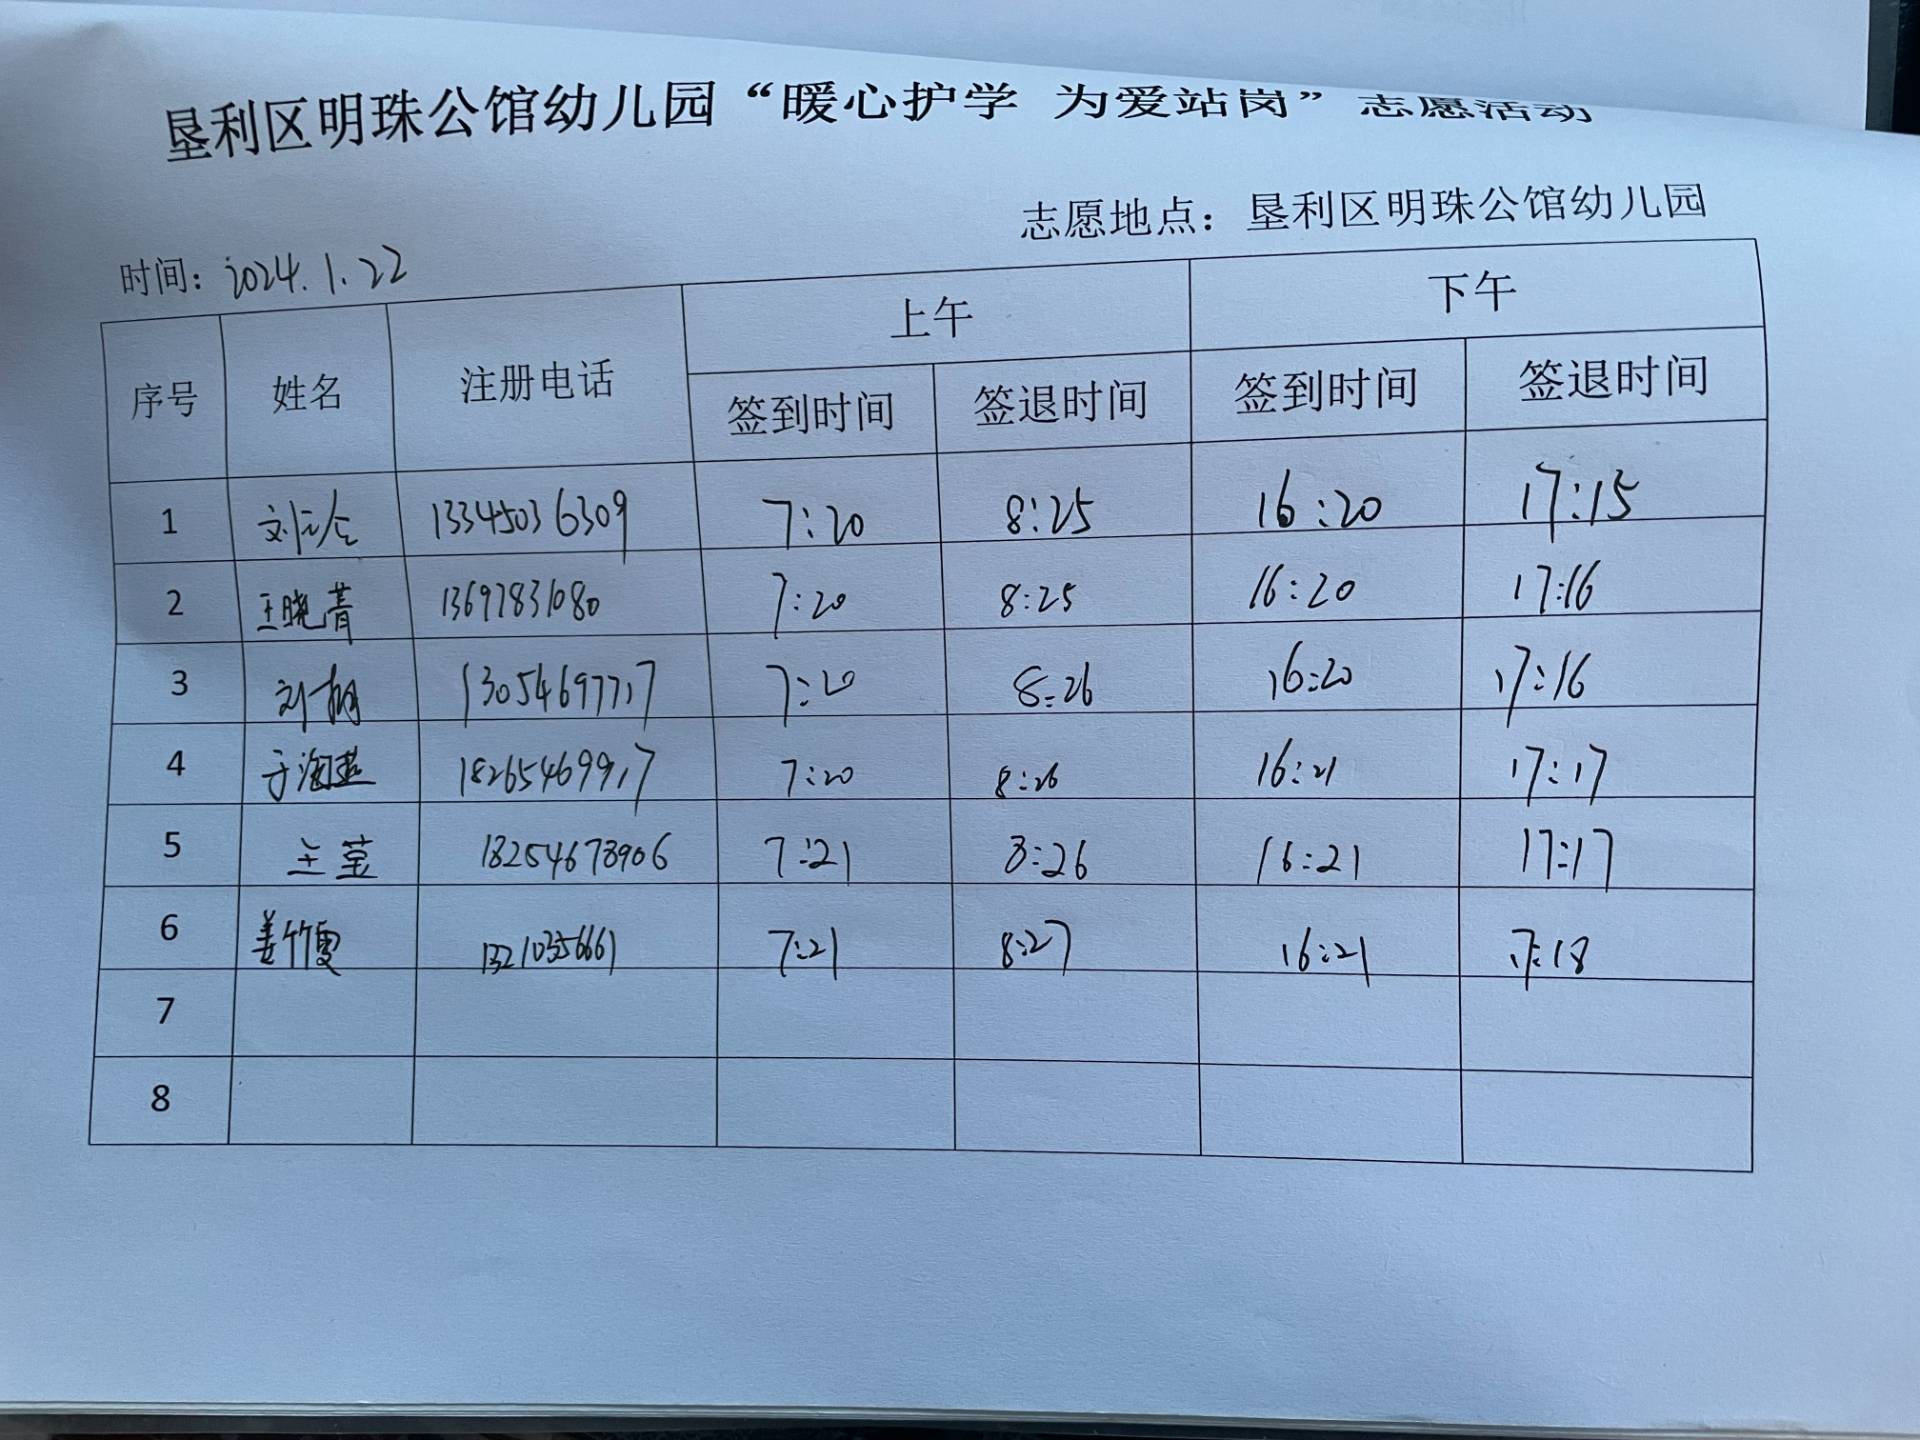 垦利区明珠公馆幼儿园“暖心护学 为爱站岗”志愿活动
志愿地点：垦利区明珠公馆幼儿园
时间：2024.1.22
序号 姓名 注册电话 上午 下午
签到时间 签退时间 签到时间 签退时间
1 刘 13345036309 7:20 8:25 16:20 17:15
2 王晓菁 13697831080 7:20 8:25 16:20 17:16
3 刘 13054697717 7:20 8:26 16:20 17:16
4 于海燕 18265469917 7:20 8:26 16:21 17:17
5 王莹 18254678906 7:21 8:26 16:21 17:17
6 姜竹雯 13210356661 7:21 8:27 16:21 17:18
7
8